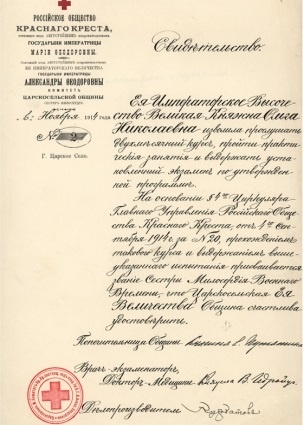 РОССІЙСКОЕ ОБЩЕСТВО
КРАСНАГО КРЕСТА,
ГОСУДАРЫНИ ИМПЕРАТРИЦЫ
МАРІИ ѲЕОДОРОВНЫ.
ЕЯ ИМПЕРАТОРСКАГО ВЕЛИЧЕСТВА
ГОСУДАРЫНИ ИМПЕРАТРИЦЫ
АЛЕКСАНДРЫ ѲЕОДОРОВНЫ
КОМИТЕТЪ
ЦАРСКОСЕЛЬСКОЙ ОБЩИНЫ
6 Ноября 1914 года
№ 2
Г. Царское Село.
Свидѣтельство.
Ея Императорское Высоче-
ство Великая Княжна Ольга
Николаевна изволила прослушать
двухмѣсячный курсъ, пройти практи-
ческія занятія и выдержать уста-
новленный экзаменъ по утвержден-
ной программѣ.
На основаніи § 4го Циркуляра
Главнаго Управленія Россійскаго Обще-
ства Краснаго Креста, отъ 4го Сен-
тября 1914 г. за № 20, прохожденіемъ
такового курса и выдержаніемъ выше-
указаннаго испытанія присваивается
званіе Сестры Милосердія Военнаго
Времени, что Царскосельская Ея
Величества Община счастлива
удостовѣрить.
Попечительница Общины
Врачъ-экзаменаторъ,
Докторъ-Медицины Княжна В. Гедройцъ
Дѣлопроизводитель